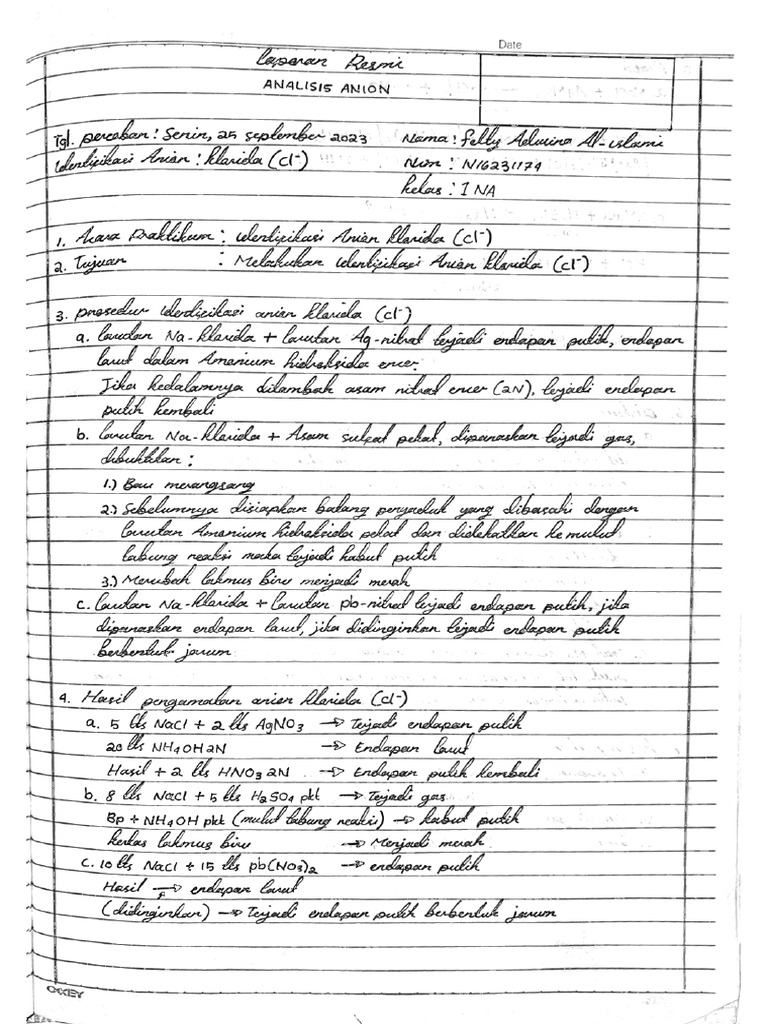 Date
Laporan Resmi
ANALISIS ANION
Tgl. percobaan : Senin, 25 september 2023
Nama : Felty Adwina Al-islami
Identifikasi Anion : klorida (Cl⁻)
Nim : N16231174
kelas : I NA
1. Acara Praktikum : Identifikasi Anion klorida (Cl⁻)
2. Tujuan : Melakukan Identifikasi Anion klorida (Cl⁻)
3. prosedur Identifikasi anion klorida (Cl⁻)
a. larutan Na-klorida + larutan Ag-nitrat terjadi endapan putih, endapan
larut dalam Amonium hidroksida encer.
Jika kedalamnya ditambah asam nitrat encer (2N), terjadi endapan
putih kembali
b. larutan Na-klorida + Asam sulfat pekat, dipanaskan terjadi gas,
dibuktikan :
1.) Bau merangsang
2.) Sebelumnya disiapkan batang pengaduk yang dibasahi dengan
larutan Amonium hidroksida pekat dan didekatkan ke mulut
tabung reaksi maka terjadi kabut putih
3.) Merubah lakmus biru menjadi merah
c. larutan Na-klorida + larutan pb-nitrat terjadi endapan putih, jika
dipanaskan endapan larut, jika didinginkan terjadi endapan putih
berbentuk jarum
4. Hasil pengamatan anion klorida (Cl⁻)
a. 5 tts NaCl + 2 tts AgNO₃ → Terjadi endapan putih
20 tts NH4OH 2N → Endapan larut
Hasil + 2 tts HNO₃ 2N → Endapan putih kembali
b. 8 tts NaCl + 5 tts H₂SO₄ pkt → Terjadi gas
Bp + NH4OH pkt (mulut tabung reaksi) → kabut putih
kertas lakmus biru → Menjadi merah
c. 10 tts NaCl + 15 tts pb(NO₃)₂ → endapan putih
Hasil → endapan larut
(didinginkan) → Terjadi endapan putih berbentuk jarum
OKEY